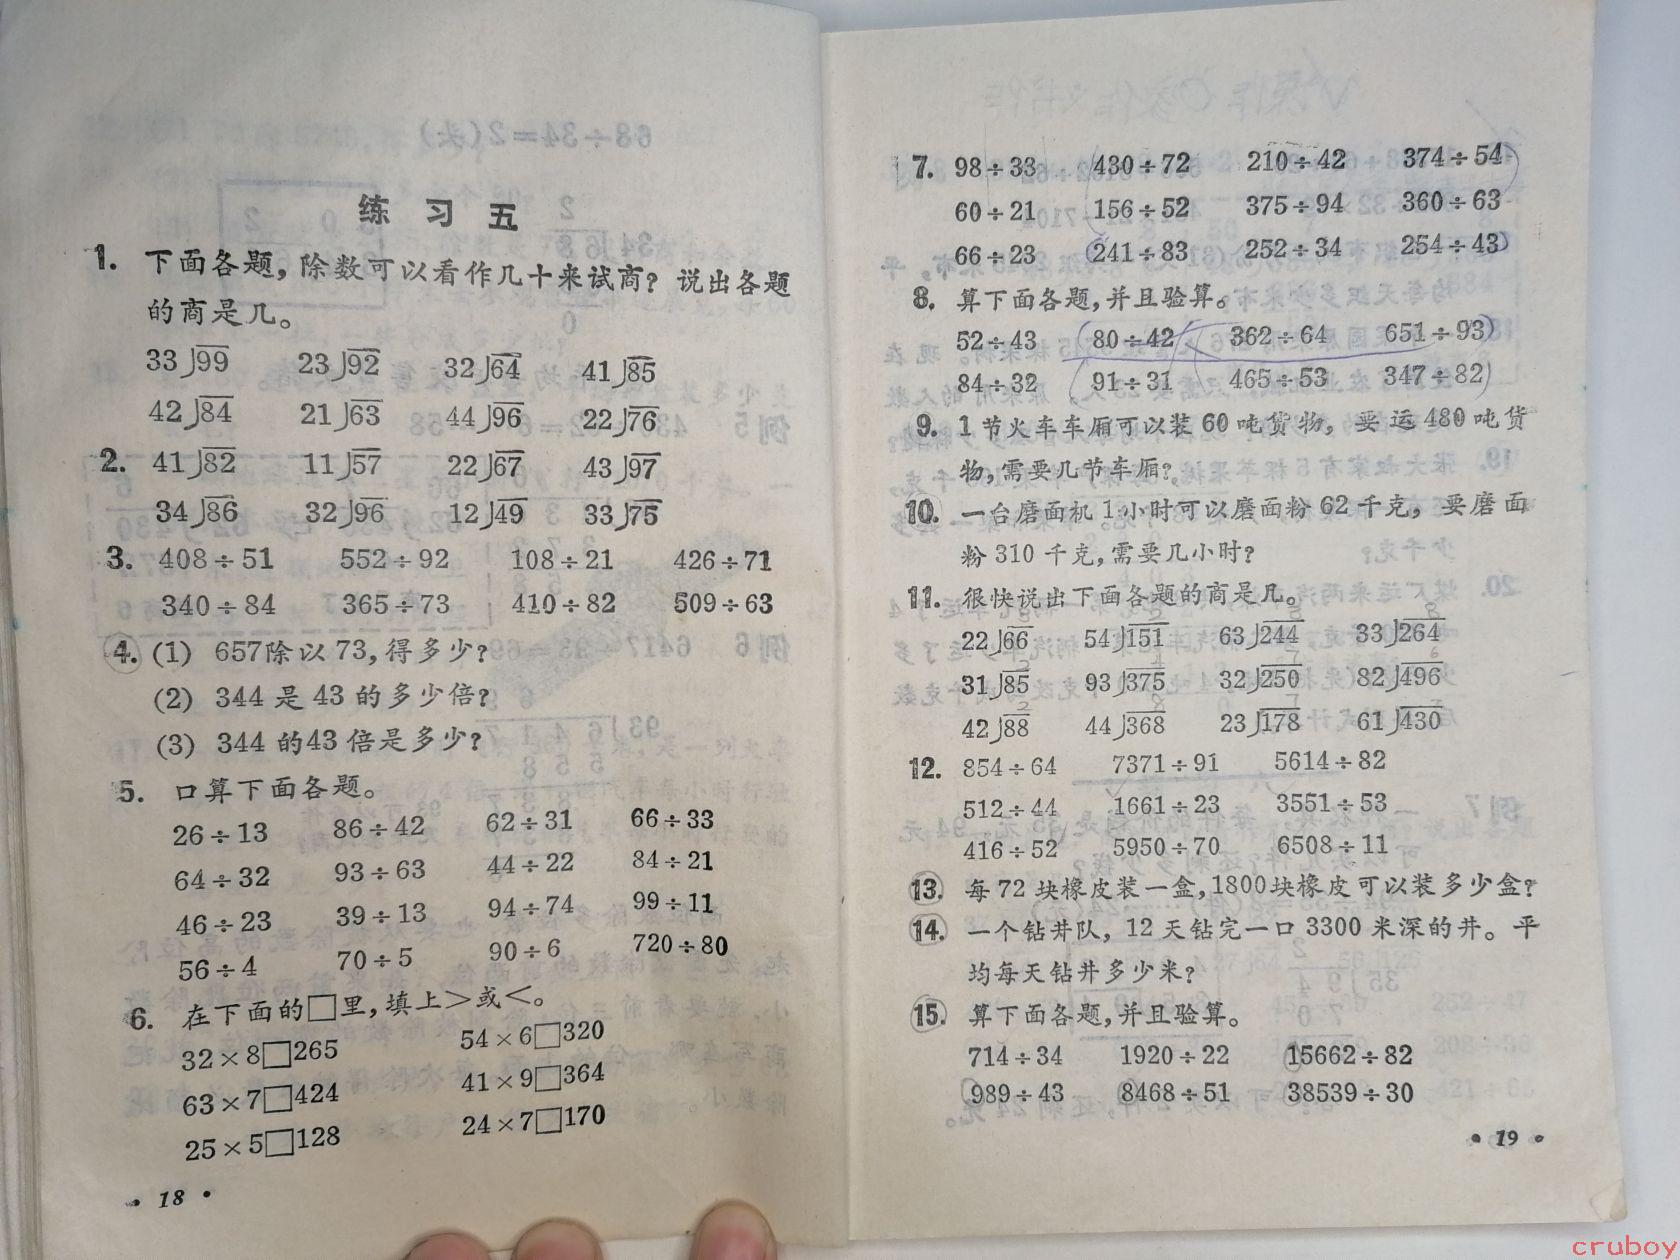 练习五
1. 下面各题,除数可以看作几十来试商? 说出各题
的商是几。
33⟌99 23⟌92 32⟌64 41⟌85
42⟌84 21⟌63 44⟌96 22⟌76
2. 41⟌82 11⟌57 22⟌67 43⟌97
34⟌86 32⟌96 12⟌49 33⟌75
3. 408÷51 552÷92 108÷21 426÷71
340÷84 365÷73 410÷82 509÷63
4. (1) 657除以73,得多少?
(2) 344是43的多少倍?
(3) 344的43倍是多少?
5. 口算下面各题。
26÷13 86÷42 62÷31 66÷33
64÷32 93÷63 44÷22 84÷21
46÷23 39÷13 94÷74 99÷11
56÷4 70÷5 90÷6 720÷80
6. 在下面的□里,填上>或<。
32×8□265 54×6□320
63×7□424 41×9□364
25×5□128 24×7□170
• 18 •
7. 98÷33 430÷72 210÷42 374÷54
60÷21 156÷52 375÷94 360÷63
66÷23 241÷83 252÷34 254÷43
8. 算下面各题,并且验算。
52÷43 80÷42 362÷64 651÷93
84÷32 91÷31 465÷53 347÷82
9. 1节火车车厢可以装60吨货物, 要运480吨货
物,需要几节车厢?
10. 一台磨面机1小时可以磨面粉62千克, 要磨面
粉310千克,需要几小时?
11. 很快说出下面各题的商是几。
22⟌66 54⟌151 63⟌244 33⟌264
31⟌85 93⟌375 32⟌250 82⟌496
42⟌88 44⟌368 23⟌178 61⟌430
12. 854÷64 7371÷91 5614÷82
512÷44 1661÷23 3551÷53
416÷52 5950÷70 6508÷11
13. 每72块橡皮装一盒,1800块橡皮可以装多少盒?
14. 一个钻井队, 12天钻完一口3300米深的井。平
均每天钻井多少米?
15. 算下面各题,并且验算。
714÷34 1920÷22 15662÷82
989÷43 8468÷51 38539÷30
• 19 •
cruboy